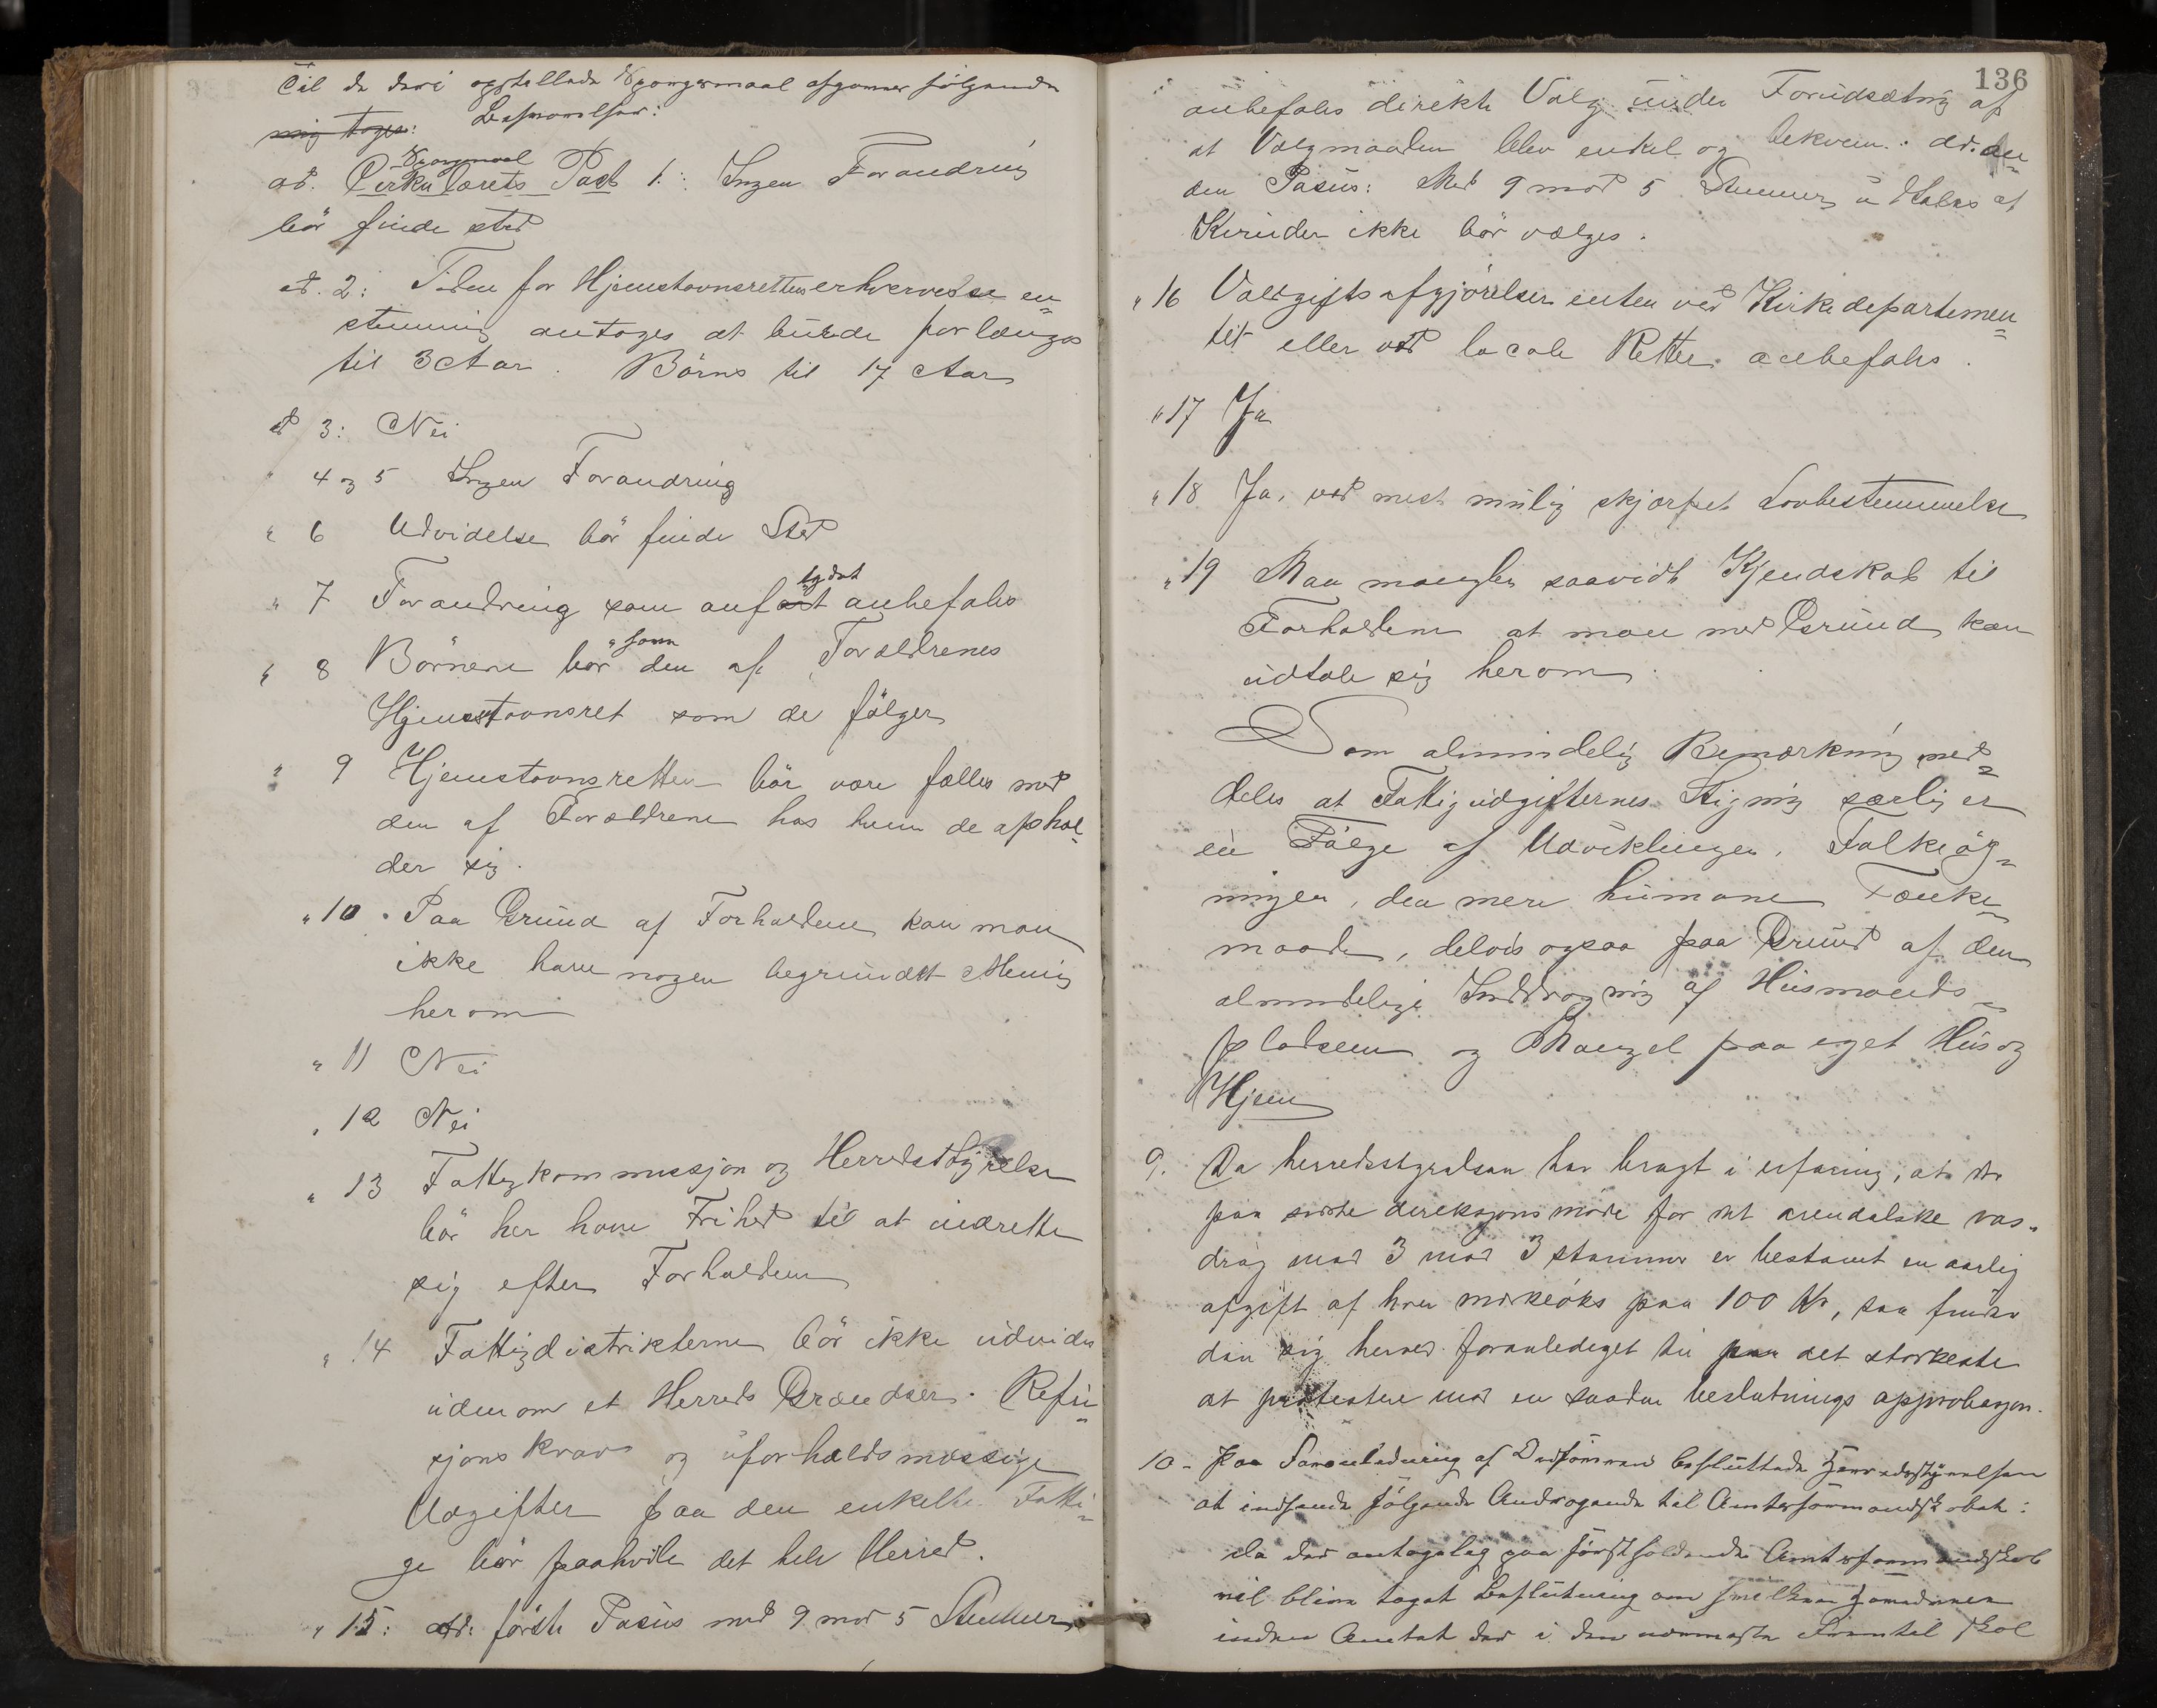 Til de deri opstillede Spørgsmaal afgaves følgende
mig toges: Besvarelser:
Spørgsmaal
ad. Cirkulærets Post 1: Ingen Forandring
bör finde sted
ad. 2: Tiden for Hjemstavnsrettens erhvervelse en=
stemmig antoges at burde forlænges
til 3 Aar. Börns til 17 Aar
ad 3: Nei
" 4 og 5 Ingen Forandring
" 6 Udvidelse bör finde Sted
" 7 Forandring som anført anbefales
" 8 Börnene bör " som den af Forældrenes
Hjemstavnsret som de fölger
" 9 Hjemstavnsretten bör være fælles med
den af Forældrene hos hvem de ophol=
der sig.
" 10 . Paa Grund af Forholdene kan man
ikke have nogen begrundet Mening
herom
" 11 Nei
" 12 Nei
" 13 Fattigkommissjon og Herredstyrelse
bör her have Frihed til at indrette
sig efter Forholdene
" 14 Fattigdistrikterne bör ikke udvides
udenom et Herreds Grændser. Refu=
sjonskrav og uforholdsmæssige
Udgifter paa den enkelte Fatti=
ge bör paahvile det hele Herred.
" 15: ad. förste Pasus med 9 mod 5 Stemmer
136
anbefales direkte Valg under Forudsætning af
at Valgmaaden blev enkel og bekvem. ad. an=
den Pasus: Med 9 mod 5 Stemmer udtales at
Kvinder ikke bör vælges.
" 16 Voldgiftsafgjörelser enten ved Kirkedepartemen=
tet eller ved locale Retter anbefales.
" 17 Ja
" 18 Ja, ved mest mulig skjærpet Lovbestemmelse
" 19 Man mangler saavidt Kjendskab til
Forholdene at man med Grund kan
udtale sig herom.
Som almindelig Bemærkning med=
deles at Fattigudgifternes Stigning særlig er
en Fölge af Udviklingen, Folkeög=
ningen, den mere humane Tænke=
maade, delvis ogsaa paa Grund af den
almindelige Inddragning af Husmands=
pladsene og Mangel paa eget Hus og
Hjem
9. Da herredsstyrelsen har bragt i erfaring, at der
paa sidste direksjonsmöde for det arendalske vas=
drag med 3 mod 3 stemmer er bestemt en aarlig
afgift af hver paa 100 Kr, saa finder
den sig herved foranlediget til paa det sterkeste
at protestere mod en saadan beslutnings approbasjon.
10. Paa Foranledning af Ordföreren besluttede Herredsstyrelsen
at indsende fölgende Andragende til Amtsformandskabet:
Da der antagelig paa förstholdende Amtsformandskab
vil blive taget Beslutning om hvilke
inden Amtet der i den nærmeste Fremtid skal